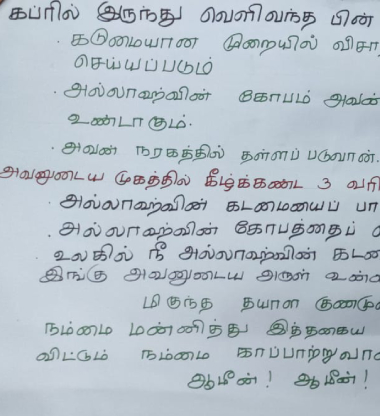 கப்ரில் இருந்து வெளிவந்த பின்
· கடுமையான முறையில் விசா
செய்யப்படும்
· அல்லாஹ்வின் கோபம் அவன்
உண்டாகும்.
· அவன் நரகத்தில் தள்ளப் படுவான்.
அவனுடைய முகத்தில் கீழ்க்கண்ட 3 வரி
· அல்லாஹ்வின் கடமையைப் பா
· அல்லாஹ்வின் கோபத்தைப்
· உலகில் நீ அல்லாஹ்வின் கட
இங்கு அவனுடைய அருள் உன்
மிகுந்த தயாள குணமு
நம்மை மன்னித்து இத்தகைய
விட்டும் நம்மை காப்பாற்றுவா
ஆமீன்! ஆமீன்!